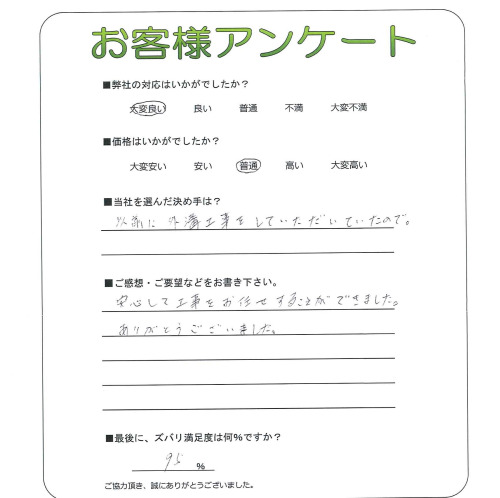 お客様アンケート
■弊社の対応はいかがでしたか？
大変良い 良い 普通 不満 大変不満
■価格はいかがでしたか？
大変安い 安い 普通 高い 大変高い
■当社を選んだ決め手は？
以前に外溝工事をしていただいていたので。
■ご感想・ご要望などをお書き下さい。
安心して工事をお任せすることができました。
ありがとうございました。
■最後に、ズバリ満足度は何%ですか？
95 %
ご協力頂き、誠にありがとうございました。